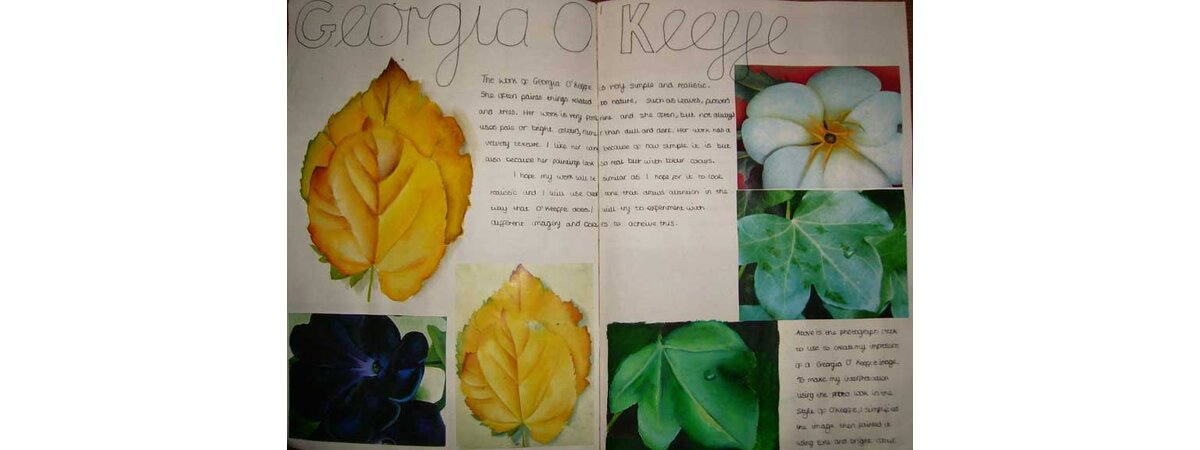 Georgia O'Keeffe
The work of Georgia O'Keeffe is very simple and realistic.
She often paints things related to nature, such as leaves, flowers
and trees. Her work is very and she often, but not always
uses pale or bright colours, than dull and dark. Her work has a
velvety texture. I like her work because of how simple it is but
also because her paintings look so real but with colours.
I hope my work will be similar as I hope for it to look
realistic and I will use and tone that draws attention in the
way that O'Keeffe does. I will try to experiment with
different imagery and colours to acheive this.
Above is the photograph I took
to use to create my impression
of a Georgia O'Keeffe image.
To make my interpretation
using the photo look in the
style of O'Keeffe, I simplified
the image then painted it
using tone and bright colour